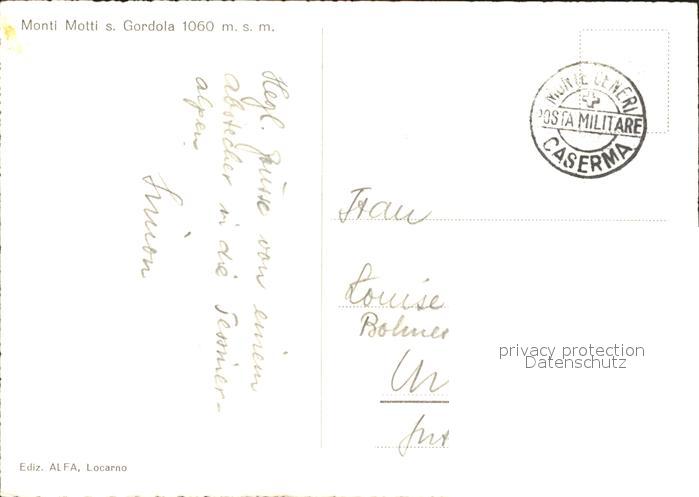 Monti Motti s. Gordola 1060 m. s. m.
Herzl. Grüsse von einem
Abstecher in die Tessiner-
alpen.
Simon
MONTE CENERI
POSTA MILITARE
CASERMA
Frau
Louise
privacy protection
Datenschutz
Ediz. ALFA, Locarno